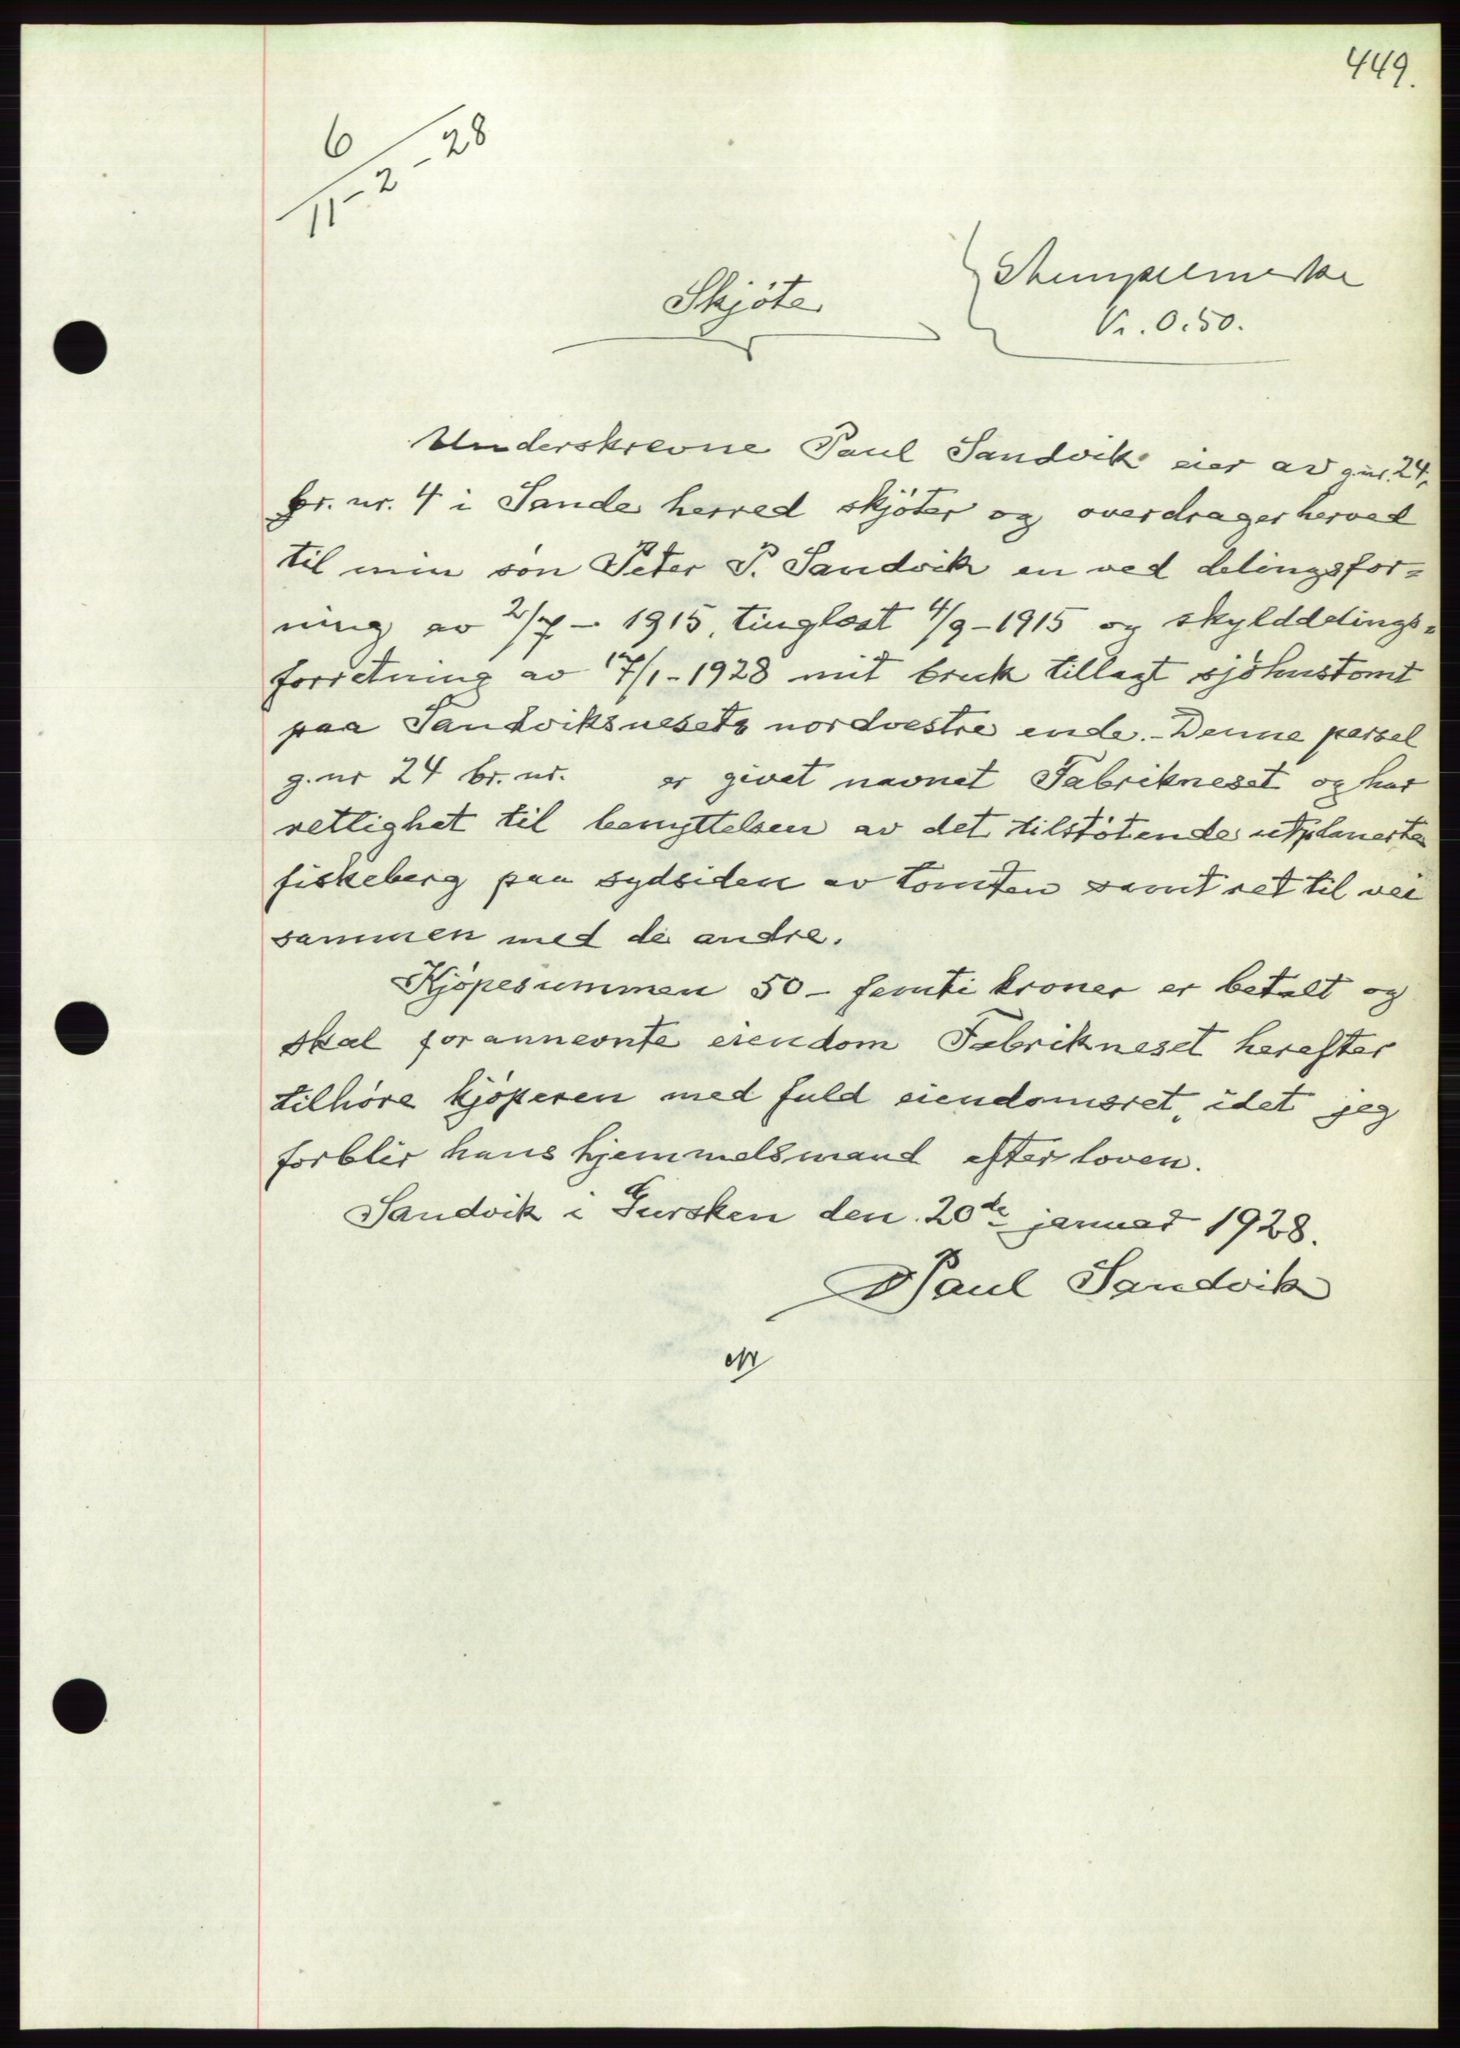 449.
6
11-2-28
Skjöte
Stempelmerke
Kr. 0.50.
Underskrevne Paul Sandvik eier av g.nr. 24,
br. nr. 4 i Sande herred skjöter og overdrager herved
til min sön Peter P. Sandvik en ved delingsfor=
ning av 2/7 - 1915, tinglæst 4/9 - 1915 og skylddelings=
forretning av 17/1 - 1928 mit bruk tillagt sjöhustomt
paa Sandviksnesets nordvestre ende. - Denne parsel
g.nr 24 br. nr. er givet navnet Fabrikneset og har
rettighet til benyttelsen av det tilstötende utplanerte
fiskeberg paa sydsiden av tomten samt ret til vei
sammen med de andre.
Kjöpesummen 50 - femti kroner er betalt og
skal forannevnte eiendom Fabrikneset herefter
tilhöre kjöperen med fuld eiendomsret, idet jeg
forblir hans hjemmelsmand efter loven.
Sandvik i Gursken den 20de januar 1928.
Paul Sandvik